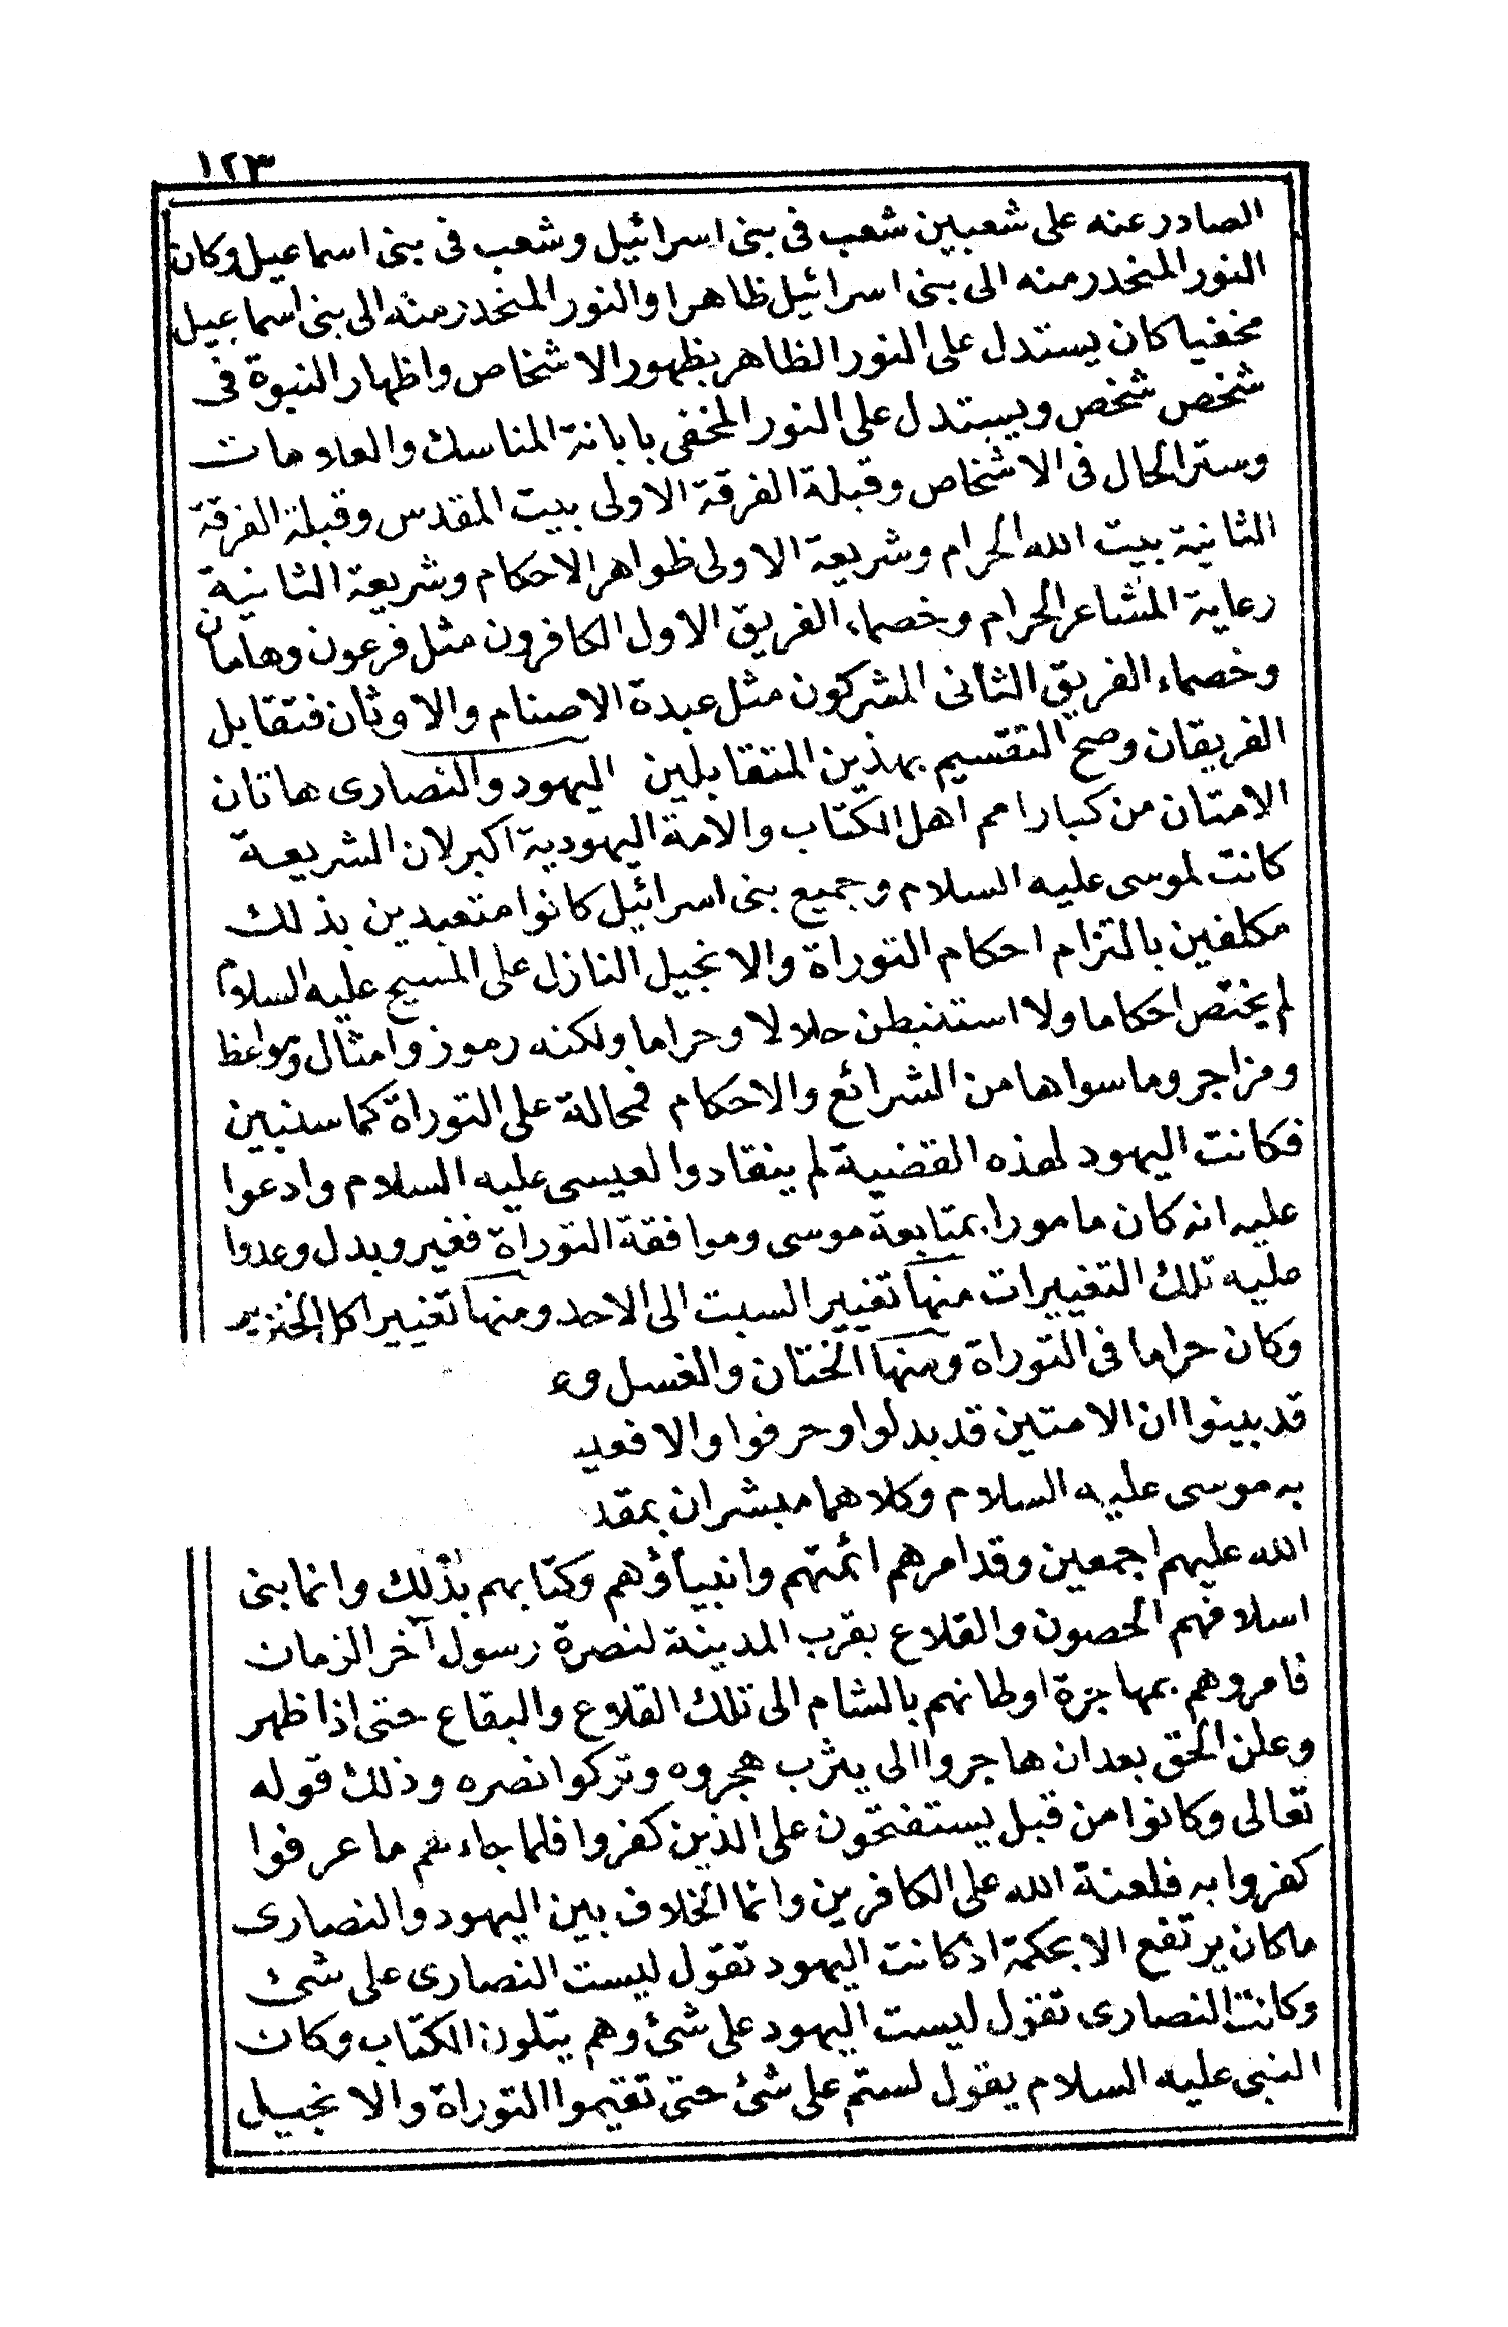 ١٢٣
الصادر عنه على شعبين شعب فى بنى اسرائيل وشعب فى بنى اسماعيل وكان
النور المنحدر منه الى بنى اسرائيل ظاهرا والنور المنحدر منه الى بنى اسماعيل
مخفيا كان يستدل على النور الظاهر بظهور الاشخاص واظهار النبوة فى
شخص شخص ويستدل على النور المخفى بابانة المناسك والعلامات
وستر الحال فى الاشخاص وقبلة الفرقة الاولى بيت المقدس وقبلة الفرقة
الثانية بيت الله الحرام وشريعة الاولى ظواهر الاحكام وشريعة الثانية
رعاية المشاعر الحرام وخصماء الفريق الاول الكافرون مثل فرعون وهامان
وخصماء الفريق الثانى المشركون مثل عبدة الاصنام والاوثان فتقابل
الفريقان وصح التقسيم بهذين المتقابلين اليهود والنصارى هاتان
الامتان من كبار امم اهل الكتاب والامة اليهودية اكبر لان الشريعة
كانت لموسى عليه السلام وجميع بنى اسرائيل كانوا متعبدين بذلك
مكلفين بالتزام احكام التوراة والانجيل النازل على المسيح عليه السلام
لم يختص احكاما ولا استنبطن حلالا وحراما ولكنه رموز وامثال ومواعظ
ومزاجر وما سواها من الشرائع والاحكام فمحالة على التوراة كما سنبين
فكانت اليهود لهذه القضية لم ينقادوا لعيسى عليه السلام وادعوا
عليه انه كان مامورا بمتابعة موسى وموافقة التوراة فغير وبدل وعدوا
عليه تلك التغييرات منها تغيير السبت الى الاحد ومنها تغيير اكل الخنزير
وكان حراما فى التوراة ومنها الختان والغسل وغ
قد بينوا ان الامتين قد بدلوا وحرفوا والا فعيـ
به موسى عليه السلام وكلاهما مبشران بمقد
الله عليهم اجمعين وقد امرهم ائمتهم وانبياؤهم وكتابهم بذلك وانما بنى
اسلافهم الحصون والقلاع بقرب المدينة لنصرة رسول آخر الزمان
فامروهم بمهاجرة اوطانهم بالشام الى تلك القلاع والبقاع حتى اذا ظهر
وعلن الحق بعد ان هاجروا الى يثرب هجروه وتركوا نصره وذلك قوله
تعالى وكانوا من قبل يستفتحون على الذين كفروا فلما جاءهم ما عرفوا
كفروا به فلعنة الله على الكافرين وانما الخلاف بين اليهود والنصارى
ما كان يرتفع الا بحكمة اذ كانت اليهود تقول ليست النصارى على شئ
وكانت النصارى تقول ليست اليهود على شئ وهم يتلون الكتاب وكان
النبى عليه السلام يقول لستم على شئ حتى تقيموا التوراة والانجيل